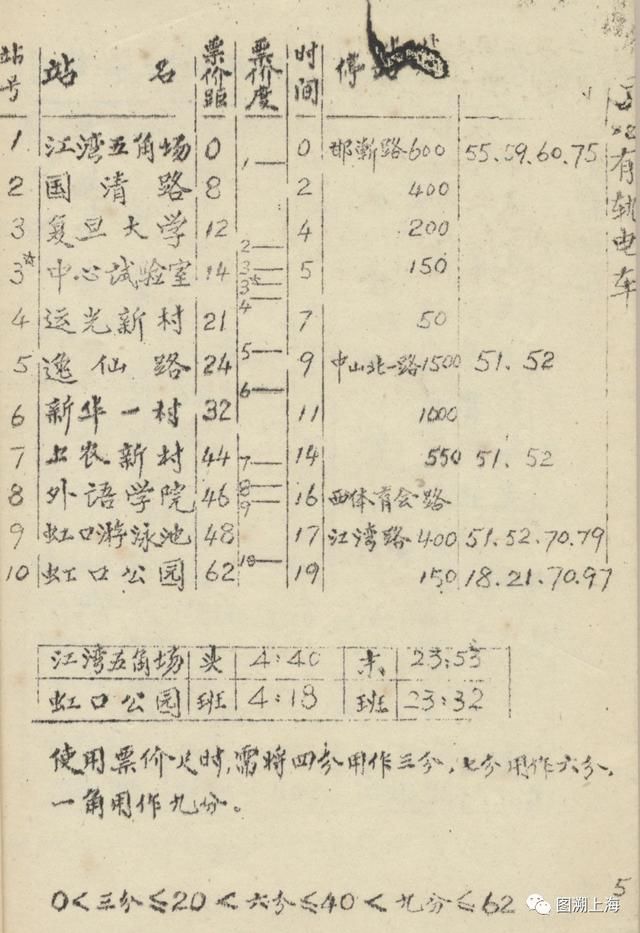 站号 站名 票价距 票价度 时间 停
1 江湾五角场 0 1 0 邯郸路 600 55.59.60.75
2 国清路 8 2 400
3 复旦大学 12 2 4 200
3☆ 中心试验室 14 3 3☆ 5 150
4 运光新村 21 4 7 50
5 逸仙路 24 5 9 中山北一路 1500 51.52
6 新华一村 32 6 11 1000
7 上农新村 44 7 14 550 51.52
8 外语学院 46 8 9 16 西体育会路
9 虹口游泳池 48 17 江湾路 400 51.52.70.79
10 虹口公园 62 10 19 150 18.21.70.97
有轨电车
江湾五角场 头 4:40 末 23:53
虹口公园 班 4:18 班 23:32
使用票价尺时,需将四分用作三分,七分用作六分,
一角用作九分。
0<三分≤20<六分≤40<九分≤62
5
图溯上海